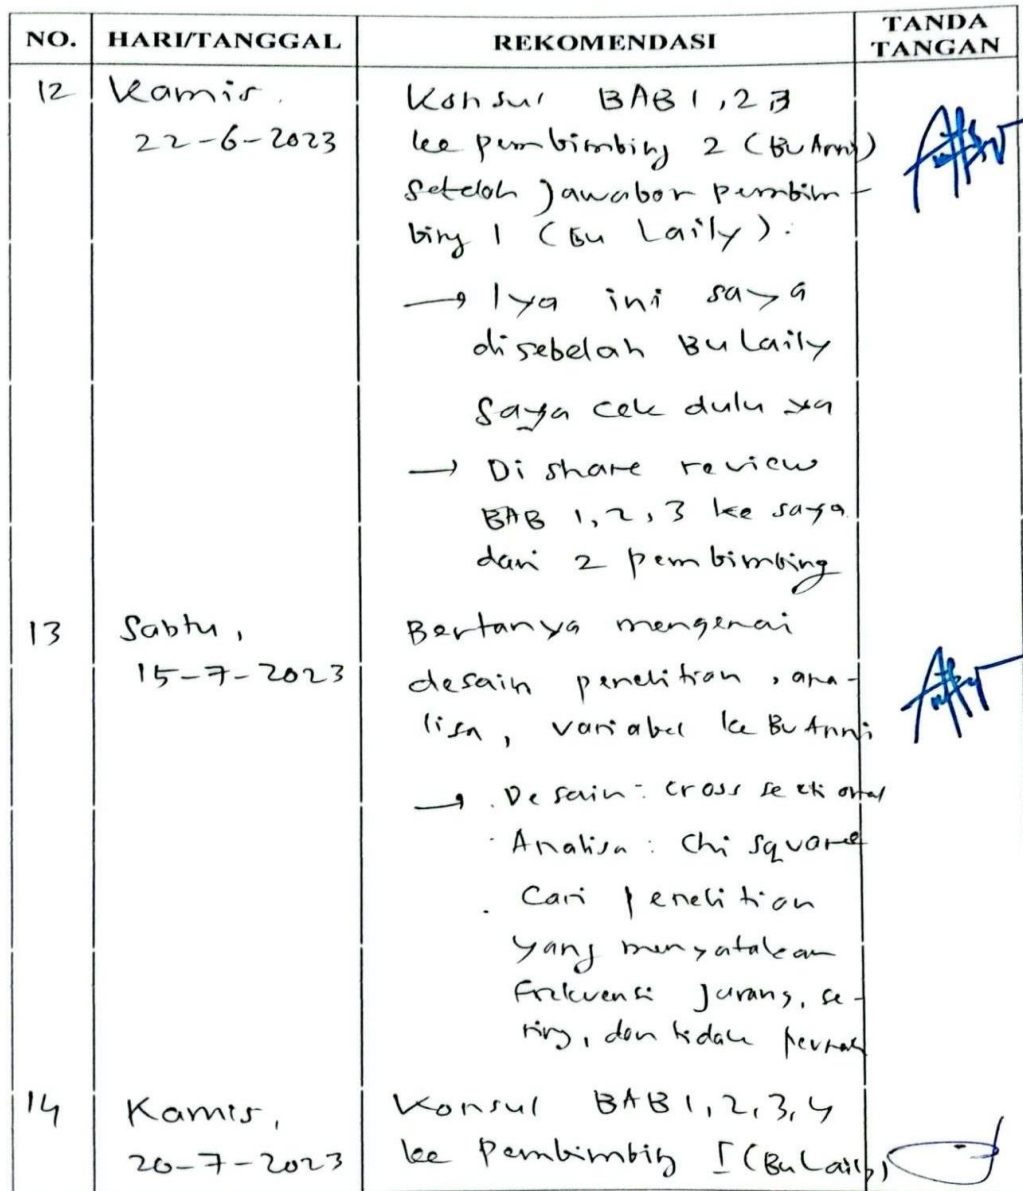 NO. HARI/TANGGAL REKOMENDASI TANDA TANGAN
12 Kamis, Konsul BAB 1,2,3
22-6-2023 ke pembimbing 2 (Bu Anni)
setelah jawaban pembim-
bing 1 (Bu Laily).
→ Iya ini saya
disebelah Bu Laily
Saya cek dulu ya
→ Di share review
BAB 1,2,3 ke saya
dari 2 pembimbing
13 Sabtu, Bertanya mengenai
15-7-2023 desain penelitian, ana-
lisa, variabel ke Bu Anni
→ . Desain: cross sectional
. Analisa: Chi square
. Cari penelitian
yang menyatakan
Frekuensi Jarang, se-
ring, dan tidak pernah
14 Kamis, Konsul BAB 1,2,3,4
20-7-2023 ke Pembimbing I (Bu Laily)